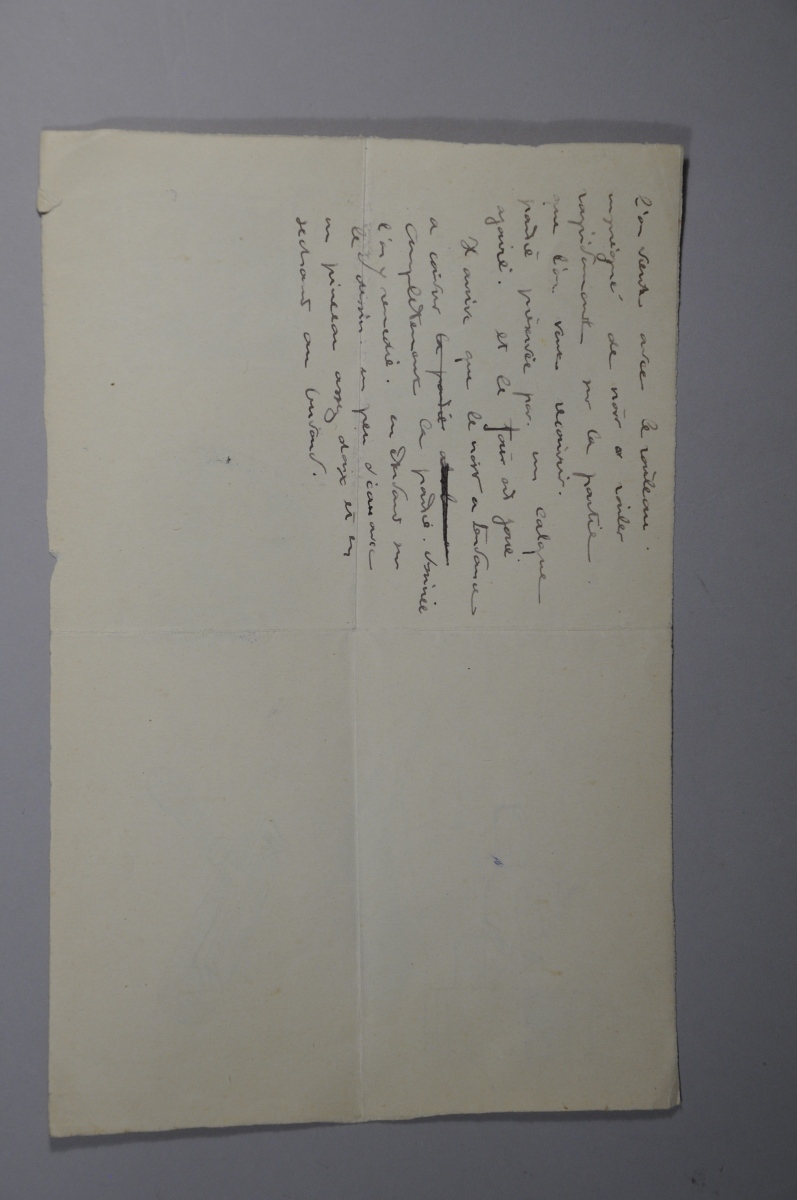 l'on vient avec le rouleau.
imprégné de noir à rouler
rapidement sur la partie
que l'on veut recouvrir.
partie préservée par un calque
ajouré. et le tour est joué.
Il arrive que le noir a tendance
a couvrir la partie
complètement la partie. dessinée
l'on y remedie. en mettant sur
le dessin. un peu d'eau avec
un pinceau assez doux et en
sechant au buvard.